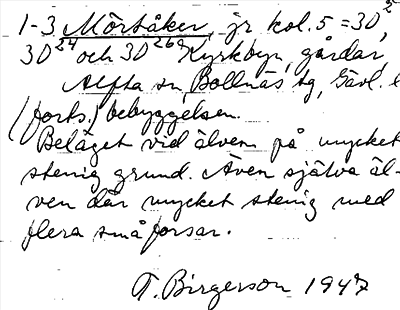 1-3 Mörtåker, jr kol. 5 = 30²,
30²⁴ och 30²⁶ᵃ Kyrkbyn, gårdar,
Alfta sn, Bollnäs tg, Gävl. l
(forts.) bebyggelsen.
Beläget vid älven på mycket
stenig grund. Även själva äl-
ven där mycket stenig med
flera små forsar.
T. Birgerson 1947